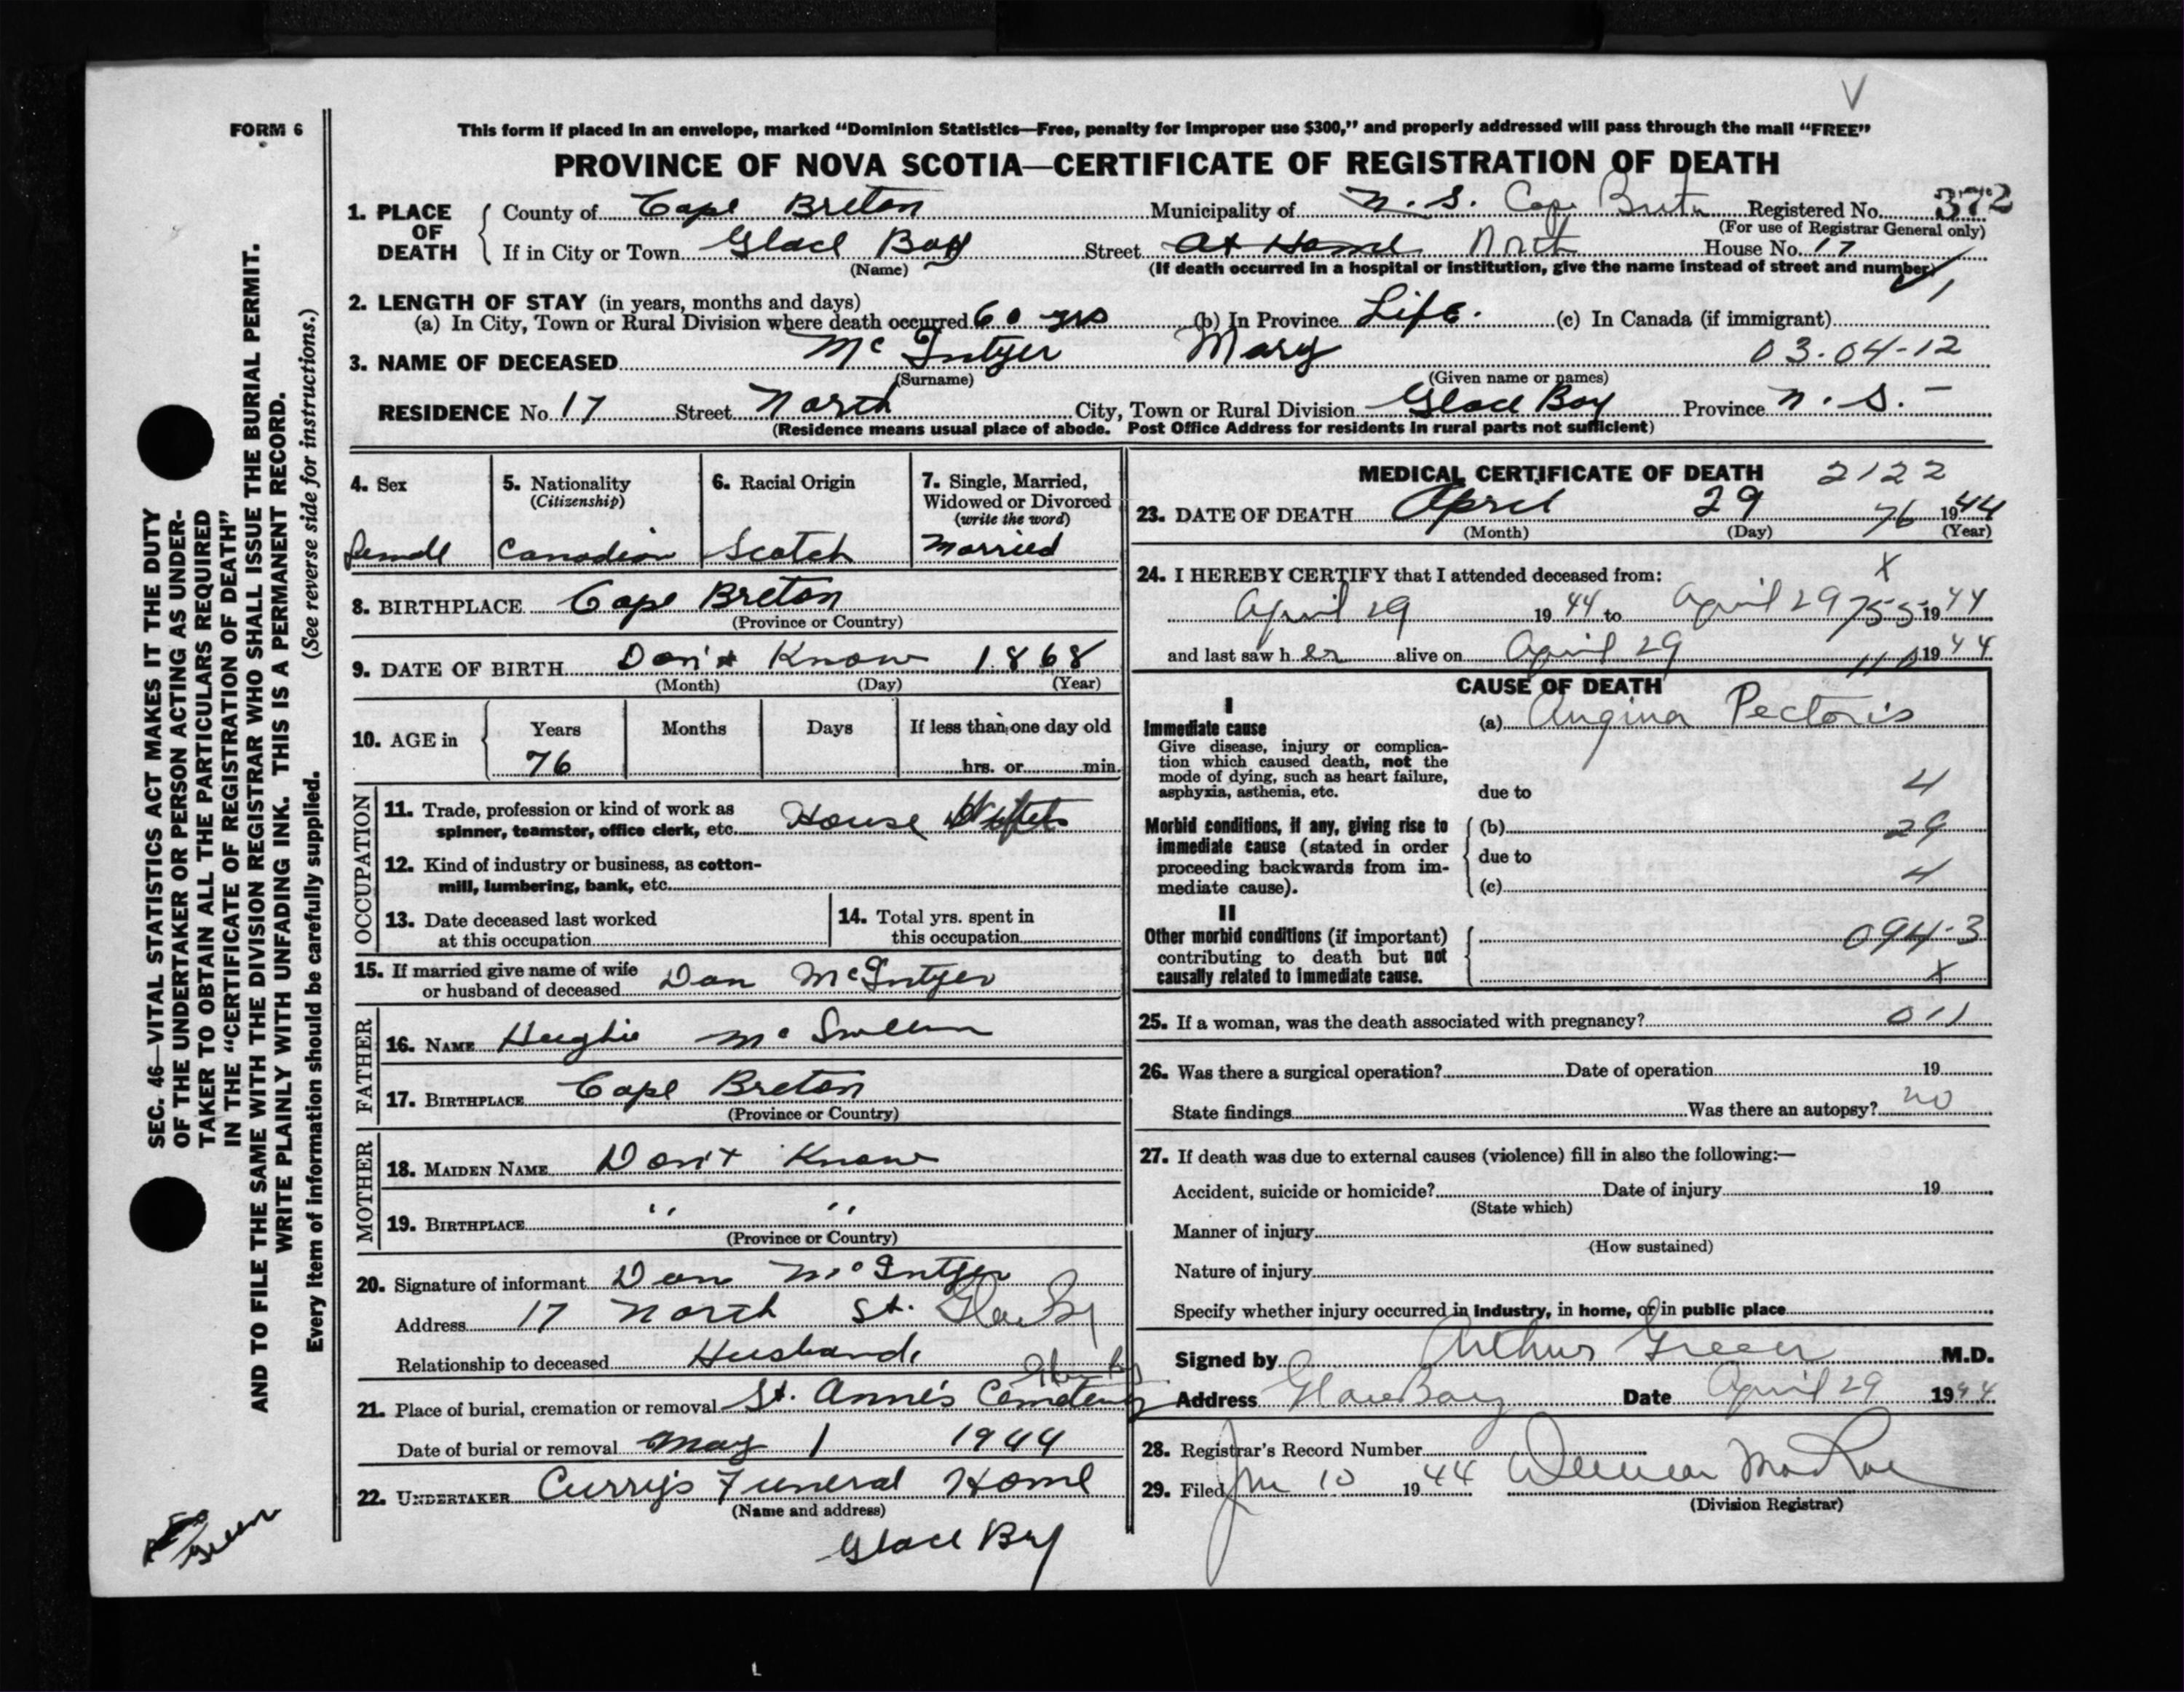 FORM 6
This form if placed in an envelope, marked "Dominion Statistics—Free, penalty for improper use $300," and properly addressed will pass through the mail "FREE"
PROVINCE OF NOVA SCOTIA—CERTIFICATE OF REGISTRATION OF DEATH
1. PLACE OF DEATH
County of Cape Breton Municipality of N. S. Cape Breton Registered No. 372
(For use of Registrar General only)
If in City or Town Glace Bay Street At Home North House No. 17
(Name) (If death occurred in a hospital or institution, give the name instead of street and number)
2. LENGTH OF STAY (in years, months and days)
(a) In City, Town or Rural Division where death occurred 60 yrs (b) In Province Life. (c) In Canada (if immigrant)
3. NAME OF DECEASED McIntyer Mary 03.04-12
(Surname) (Given name or names)
RESIDENCE No. 17 Street North City, Town or Rural Division Glace Bay Province N. S. -
(Residence means usual place of abode. Post Office Address for residents in rural parts not sufficient)
4. Sex
Female
5. Nationality
(Citizenship)
Canadian
6. Racial Origin
Scotch
7. Single, Married,
Widowed or Divorced
(write the word)
Married
8. BIRTHPLACE Cape Breton
(Province or Country)
9. DATE OF BIRTH Don't Know 1868
(Month) (Day) (Year)
10. AGE in Years Months Days If less than one day old
76 hrs. or min.
OCCUPATION
11. Trade, profession or kind of work as
spinner, teamster, office clerk, etc. House
12. Kind of industry or business, as cotton-
mill, lumbering, bank, etc.
13. Date deceased last worked
at this occupation
14. Total yrs. spent in
this occupation
15. If married give name of wife
or husband of deceased Dan McIntyer
FATHER
16. NAME Hughie
17. BIRTHPLACE Cape Breton
(Province or Country)
MOTHER
18. MAIDEN NAME Don't Know
19. BIRTHPLACE " "
(Province or Country)
20. Signature of informant Dan McIntyer
Address 17 North St. Glace Bay
Relationship to deceased Husband.
Glace Bay
21. Place of burial, cremation or removal St. Anne's Cemetery
Date of burial or removal May 1 1944
22. UNDERTAKER Curry's Funeral Home
(Name and address)
Glace Bay
MEDICAL CERTIFICATE OF DEATH 2122
23. DATE OF DEATH April 29 76 1944
(Month) (Day) (Year)
24. I HEREBY CERTIFY that I attended deceased from: X
April 29 1944 to April 29 755 1944
and last saw her alive on April 29 1944
CAUSE OF DEATH
I
Immediate cause
Give disease, injury or complica-
tion which caused death, not the
mode of dying, such as heart failure,
asphyxia, asthenia, etc.
(a) Angina Pectoris
due to 4
Morbid conditions, if any, giving rise to
immediate cause (stated in order
proceeding backwards from im-
mediate cause).
(b) 29
due to
(c) 4
II
Other morbid conditions (if important)
contributing to death but not
causally related to immediate cause.
094-3
X
25. If a woman, was the death associated with pregnancy? 011
26. Was there a surgical operation? Date of operation 19
State findings Was there an autopsy? no
27. If death was due to external causes (violence) fill in also the following:—
Accident, suicide or homicide? Date of injury 19
(State which)
Manner of injury
(How sustained)
Nature of injury
Specify whether injury occurred in industry, in home, or in public place
Signed by Arthur Green M.D.
Address Glace Bay Date April 29 1944
28. Registrar's Record Number
29. Filed 10 1944
(Division Registrar)
SEC. 46—VITAL STATISTICS ACT MAKES IT THE DUTY
OF THE UNDERTAKER OR PERSON ACTING AS UNDER-
TAKER TO OBTAIN ALL THE PARTICULARS REQUIRED
IN THE "CERTIFICATE OF REGISTRATION OF DEATH"
AND TO FILE THE SAME WITH THE DIVISION REGISTRAR WHO SHALL ISSUE THE BURIAL PERMIT.
WRITE PLAINLY WITH UNFADING INK. THIS IS A PERMANENT RECORD.
Every item of information should be carefully supplied. (See reverse side for instructions.)
Green